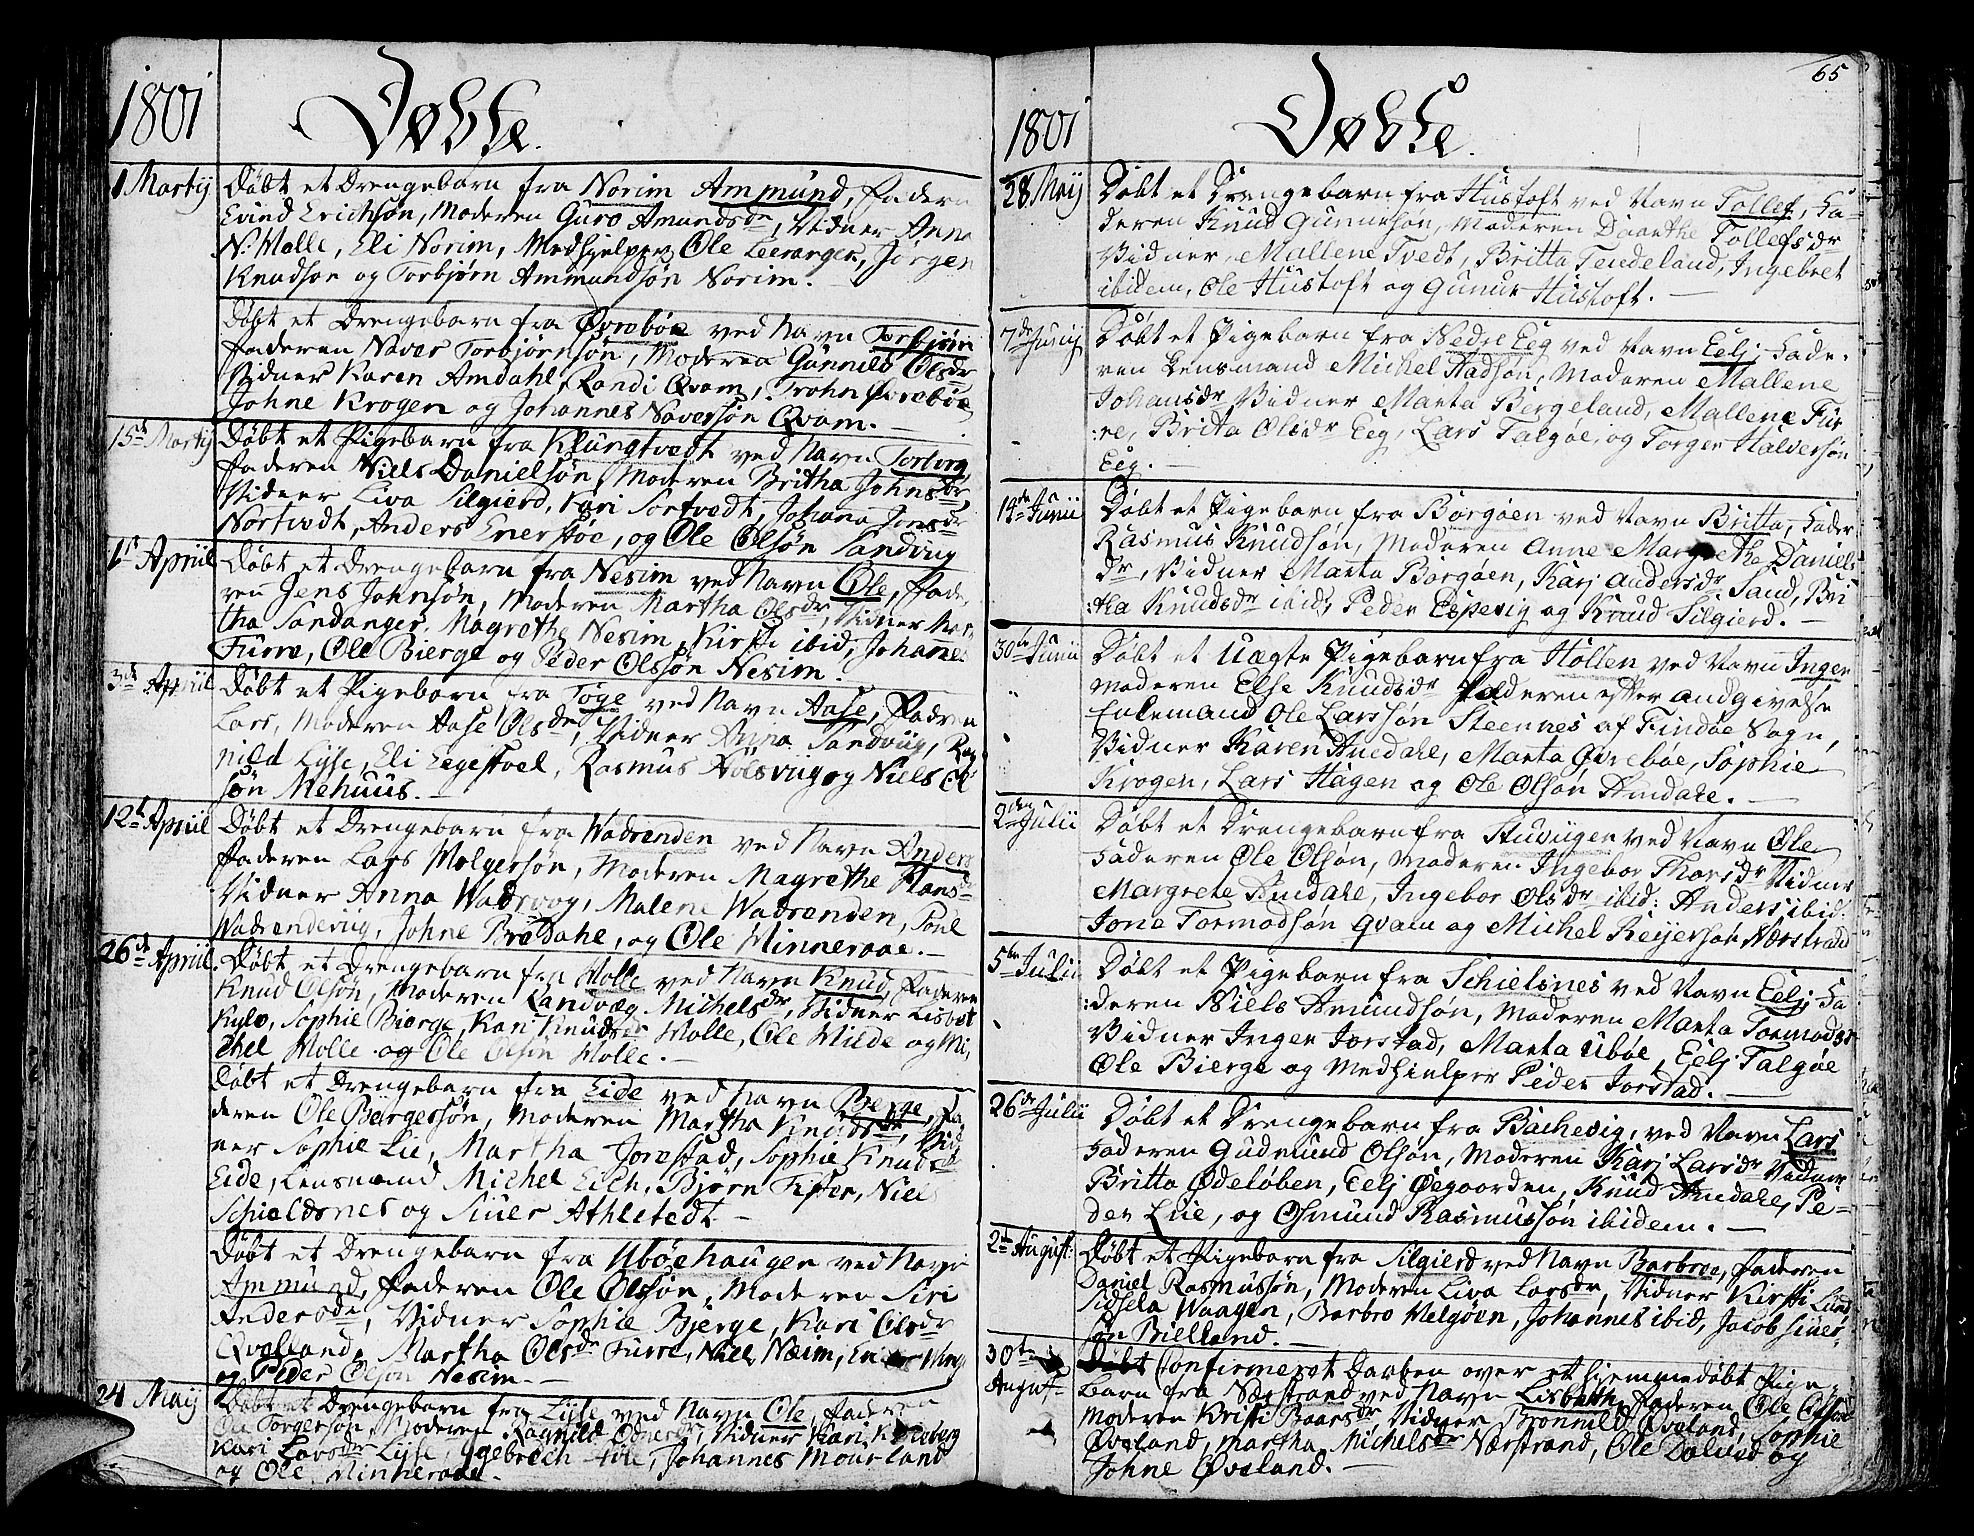 1801
Døbte.
1 Martij
Døbt et Drengebarn fra Norim Ammund, Faderen
Evind Erichsøn, Moderen Guro Amundsdr, Vidner Anna
N. Molle, Eli Norim, Medhjelper Ole Leeranger, Jørgen
Knudsøn og Torbjørn Ammundsøn Norim.
Døbt et Drengebarn fra Øvrebøe ved Navn Torbjørn
Faderen Naver Torbjørnsøn, Moderen Gunnild Olsdr
Vidner Karen Amdahl, Randi Qvam, Trohn Øvrebøe
Johne Krogen og Johannes Naversøn Qvam.
15t Martij
Døbt et Pigebarn fra Klungtvedt ved Navn Torborg
Faderen Niels Danielsøn, Moderen Britha Johnsdr
Vidner Liva Silgierd, Kari Sortvedt, Johana Jonsdr
Nortvedt, Anders Enerstøe, og Ole Olsøn Sandviig
1t Apriil
Døbt et Drengebarn fra Nesim ved Navn Ole, Fade-
ren Jens Johnsøn, Moderen Martha Olsdr, Vidner Mar-
tha Sandanger, Magrethe Nesim, Kirsti ibid, Johanes
Furre, Ole Bierge og Peder Olssøn Nesim.
3de Apriil
Døbt et Pigebarn fra Toge ved Navn Aase, Faderen
Lars, Moderen Aase Olsdr, Vidner Anna Sandviig, Rag-
nild Lyse, Eli Eegestoel, Rasmus Holsviig og Niels El
søn Mehuus.
12t Apriil
Døbt et Drengebarn fra Wadrenden ved Navn Anders
Faderen Lars Molgersøn, Moderen Magrethe Hansdr
Vidner Anna Wadrvog, Malene Wadrenden, Poul
Wadrenderviig, Johne Bredahl, og Ole Minneraae.
26de Apriil
Døbt et Drengebarn fra Molle ved Navn Knud, Faderen
Knud Olsøn, Moderen Randvæg Michelsdr, Vidner Lisbet
Kylv, Sophie Bierge, Kari Knudsdr Molle, Ole Wilde og Mi,
chel Molle og Ole Olsøn Molle.
Døbt et Drengebarn fra Eide ved Navn Berge, Fa
deren Ole Børgersøn, Moderen Martha Knudsdr, Vid
ner Sophie Lie, Martha Jorestad, Sophie Knudsdr
Eide, Lensmand Michel Eich, Bjørn Fister, Niels
Schieldsnes og Siuer Athletedt
Døbt et Drengebarn fra Ubøehaugen ved Navn
Ammund, Faderen Ole Olssøn, Moderen Siri
Andersdr, Vidner Sophie Bjerge, Kari Olsdr
Qvalland, Martha Olsdr Furre, Niels Næim,
og Peder Olsøn Nesim.
24 Maij
Døbt et Drengebarn fra Lyse ved Navn Ole, Faderen
Ole Torgersøn, Moderen Ragnild, Vidner Kari
Kari Larsdr Lyse, Ingebrech, Johannes Mourland
og Ole Minneraae.
65
1801
Døbte.
28 Maij
Døbt et Drengebarn fra Hustoft ved Navn Tollef, Fa-
deren Knud Gunursøn, Moderen Daarthe Tollefsdr
Vidner, Mallene Tvedt, Britta Tendeland, Ingebret
ibidem, Ole Hustoft og Gunur Hustoft.
7de Junij
Døbt et Pigebarn fra Nedre Eeg ved Navn Eelj, Fade-
ren Lensmand Michel Hadsøn, Moderen Mallene
Johansdr Vidner Marta Bergeland, Mallene Fur
:re, Britta Olsdr Eeg, Lars Talgøe, og Torger Halversøn
Eeg.
14de Junii
Døbt et Pigebarn fra Borgøen ved Navn Britta, Fader
Rasmus Knudsøn, Moderen Anne Margrethe Daniels
dr, Vidner Marta Borgøen, Karj Andersdr Sand, Bri
:tha Knudsdr ibid, Peder Espevig og Knud Silgierd.
30te Junii
Døbt et Uægte Pigebarn fra Høllen ved Navn Ingen
Moderen Else Knudsdr Faderen efter Andgivelse
Enkemand Ole Larssøn Steennes af Findøe Sogn,
Vidner Karen Amdahl, Marta Øvrebøe, Sophie
Krogen, Lars Hagen og Ole Olsøn Amdahl.
2den Julii
Døbt et Drengebarn fra Stuviigen ved Navn Ole
Faderen Ole Olsøn, Moderen Ingebor Thorsdr Vidner
Margrete Amdahl, Ingebor Olsdr ibid: Anders ibid:
Jone Tormodsøn Qvam og Michel Reijersøn Nærstrand
5te Julii
Døbt et Pigebarn fra Schielsnes ved Navn Eelj, Fa
:deren Niels Amundsøn, Moderen Marta Tormodsdr
Vidner Ingen Jorstad, Marta Ubøe, Eelj Talgøe
Ole Bierge og Medhielper Peder Jorstad.
26de Julii
Døbt et Drengebarn fra Bachevig, ved Navn Lars
Faderen Gudmund Olsøn, Moderen Karj Larsdr Vidner
Britta Ødeløben, Eelj Øegaarden, Knud Amdahl, Pe-
der Lue, og Osmund Rasmussøn ibidem.
2t August:
Døbt et Pigebarn fra Silgierd ved Navn Barbroe, Faderen
Daniel Rasmussøn, Moderen Liva Larsdr, Vidner Kirsti Lund
Sidsela Waagen, Barbro Helgøen, Johannes ibid, Jacob Siuer,
søn Bielland.
30te August
Døbt Confirmeret Daaben over et hjemmedøbt Pige
barn fra Nærstrand ved Navn Lisbeth, Faderen Ole Olsøn
Moderen Kristi Baarsdr, Vidner Brønnild Øveland, Sophie
Øveland, Martha Michelsdr Nærstrand, Ole Dalvid og
Johne Øveland.